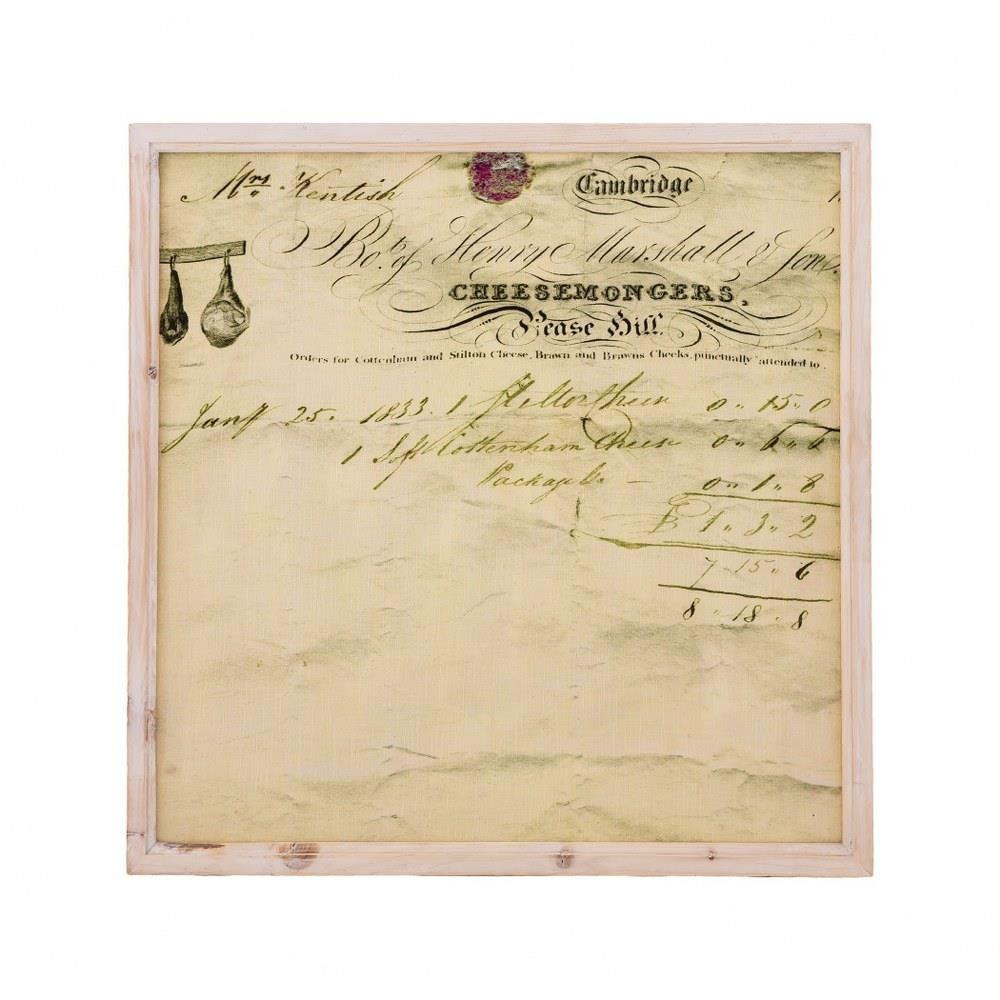 Mrs Kentish
Cambridge
Bot. of Henry Marshall & Son.
CHEESEMONGERS,
Pease Hill.
Orders for Cottenham and Stilton Cheese, Brawn and Brawns Cheeks, punctually attended to.
Jany 25. 1833. 1 Stilton Cheese 0 " 15 " 0
1 Soft Cottenham Cheese 0 " 6 " 6
Package &c. — 0 " 1 " 8
£ 1 " 3 " 2
7 15 " 6
8 " 18 " 8